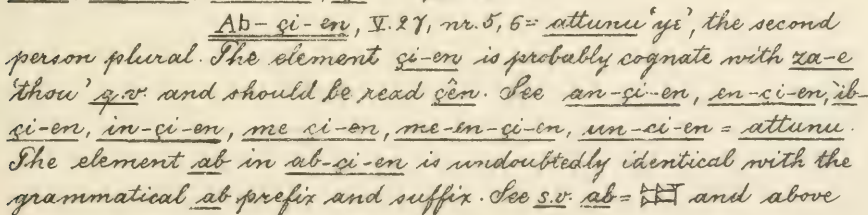 Ab-çi-en, V. 27, nr. 5, 6 = attunu 'ye', the second
person plural. The element çi-en is probably cognate with za-e
'thou' q.v. and should be read çên. See an-çi-en, en-çi-en, ib-
çi-en, in-çi-en, me çi-en, me-en-çi-en, un-çi-en = attunu.
The element ab in ab-çi-en is undoubtedly identical with the
grammatical ab prefix and suffix. See s.v. ab = and above